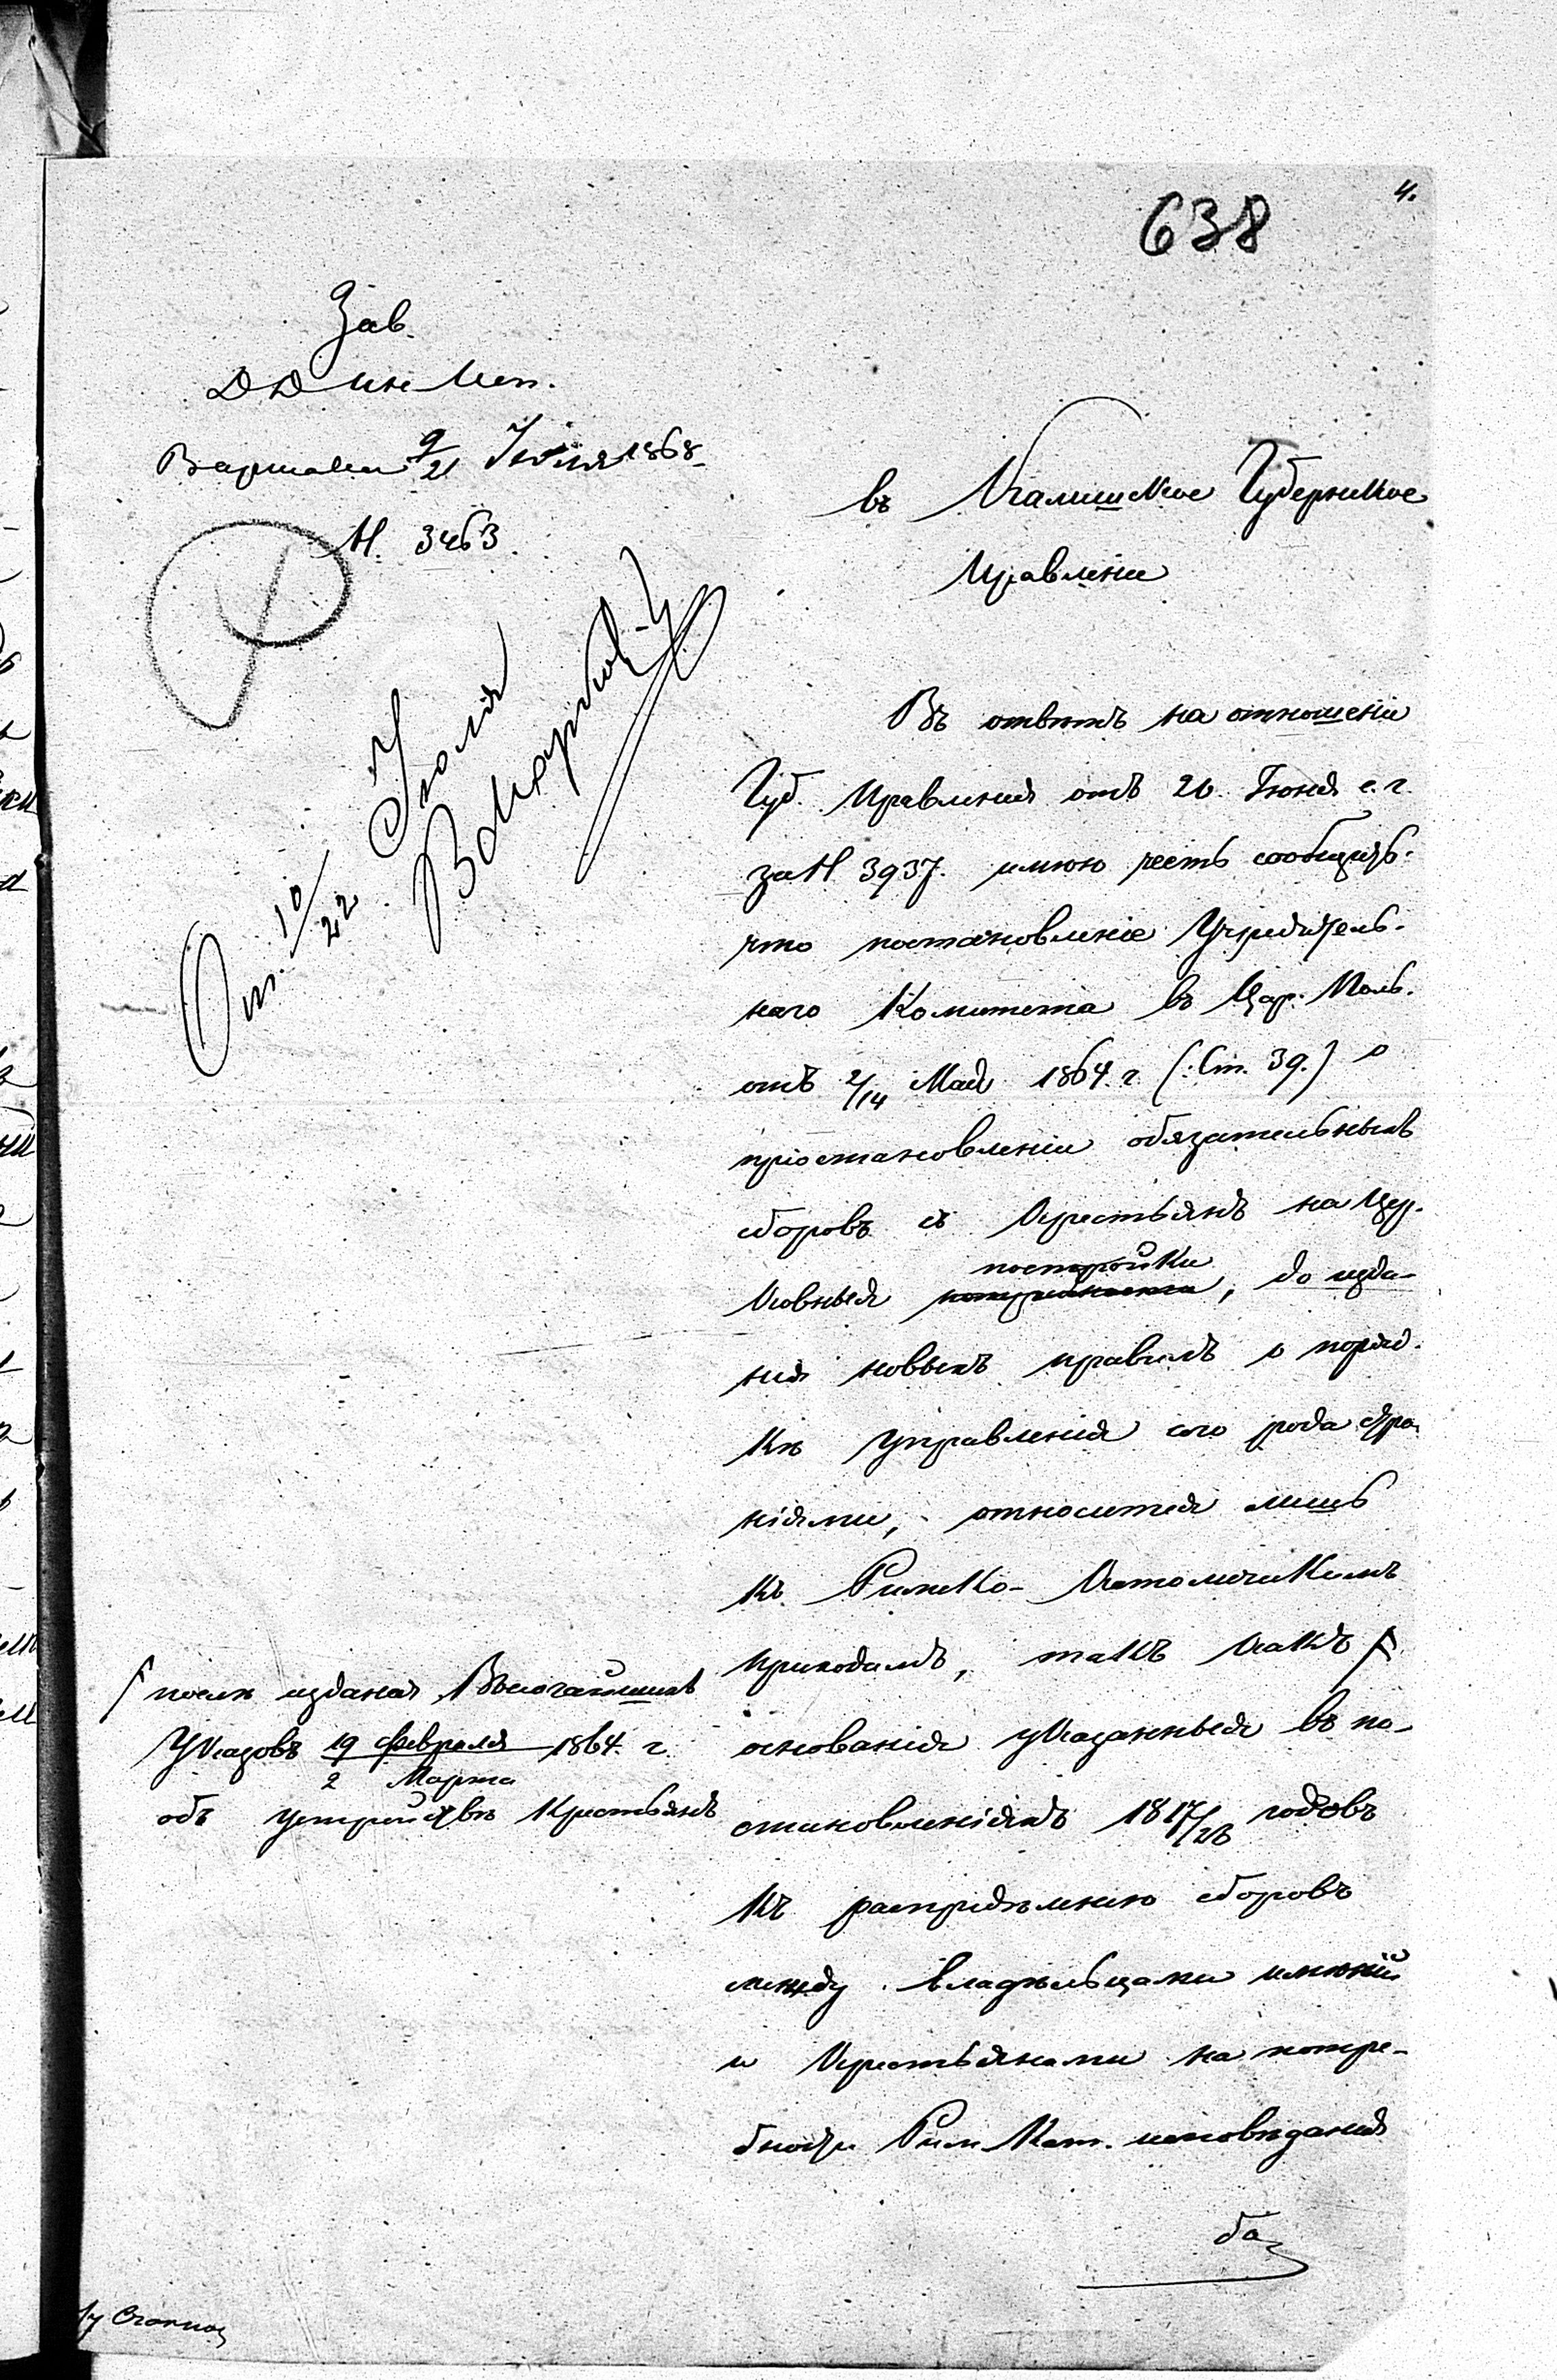 4.
638
Зав.
ДД Ин Исп.
Варшава 9/21 Іюля 1868
N. 3463.
въ Калишское Губернское
Правленіе
От. 10/22 Іюля
Въ отвѣтъ на отношеніе
Губ. Правленія отъ 20. Іюня с. г.
за N 3937. имѣю честь сообщить.
что постановленіе Учредитель-
наго Комитета въ Цар. Поль.
отъ 2/14 Мая 1864. г. (: Ст. 39.) о
пріостановленіи обязательныхъ
сборовъ съ Крестьянъ на Цер-
ковныя постройки, до изда-
нія новыхъ правилъ о поряд-
кѣ управленія сего рода
ніями, относится лишь
къ Римско-Католическимъ
приходамъ, такъ какъ
основанія указанныя въ по-
становленіяхъ 1817/23 годовъ
къ распредѣленію сборовъ
между владѣльцами имѣній
и Крестьянами на потре-
бности Рим Кат. исповѣданія
после изданія Высочайшихъ
Указовъ 19 февраля / 2 Марта 1864. г.
объ устройствѣ Крестьянъ